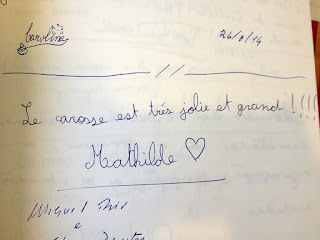 Carolina 26/8/14
Le carosse est trés jolie et grand !!!!
Mathilde ♡
Miguel
e